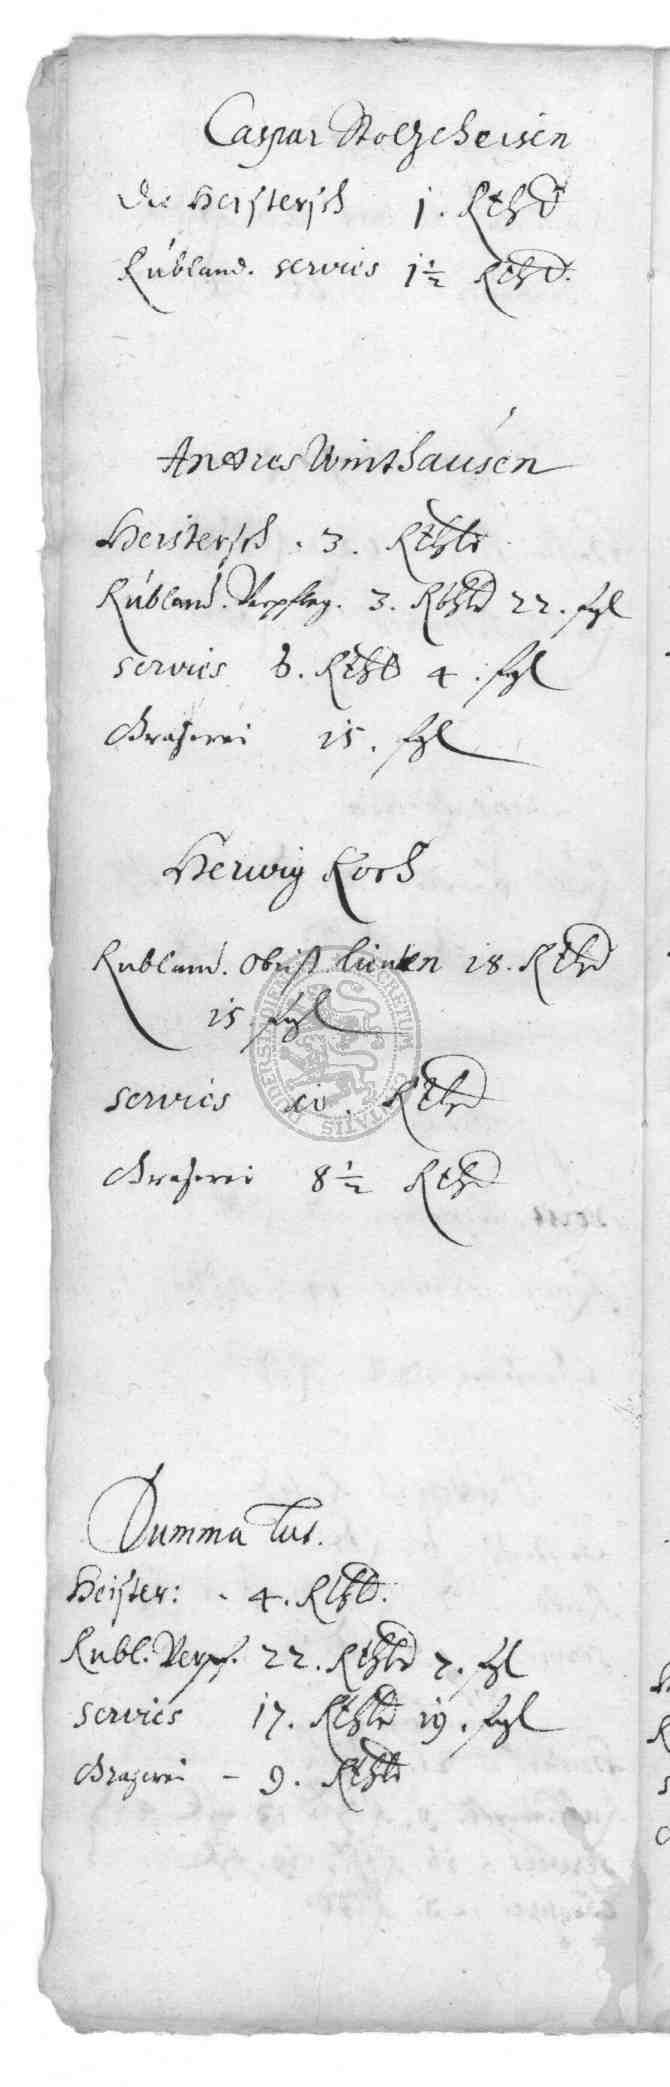 Caspar Stolzeheisen
die Heistersch 1. Rthd
Rübland. servies 1½ Rthd.
Andres Winthausen
Heistersch. 3. Rthlr
Rübland. Verpfleg. 3. Rthlr 22. sgl
servies 6. Rthlr 4. sgl
Graserei 15. sgl
Herwig Koch
Rubland. Obrist 18. Rthd
15 sgl
servies 10. Rthlr
Graserei 8½ Rthd
Summa lat.
Heister: - 4. Rthlr.
Rubl. Verpf. 22. Rthlr 7. sgl
servies 17. Rthlr 19. sgl
Graserei - 9. Rthlr